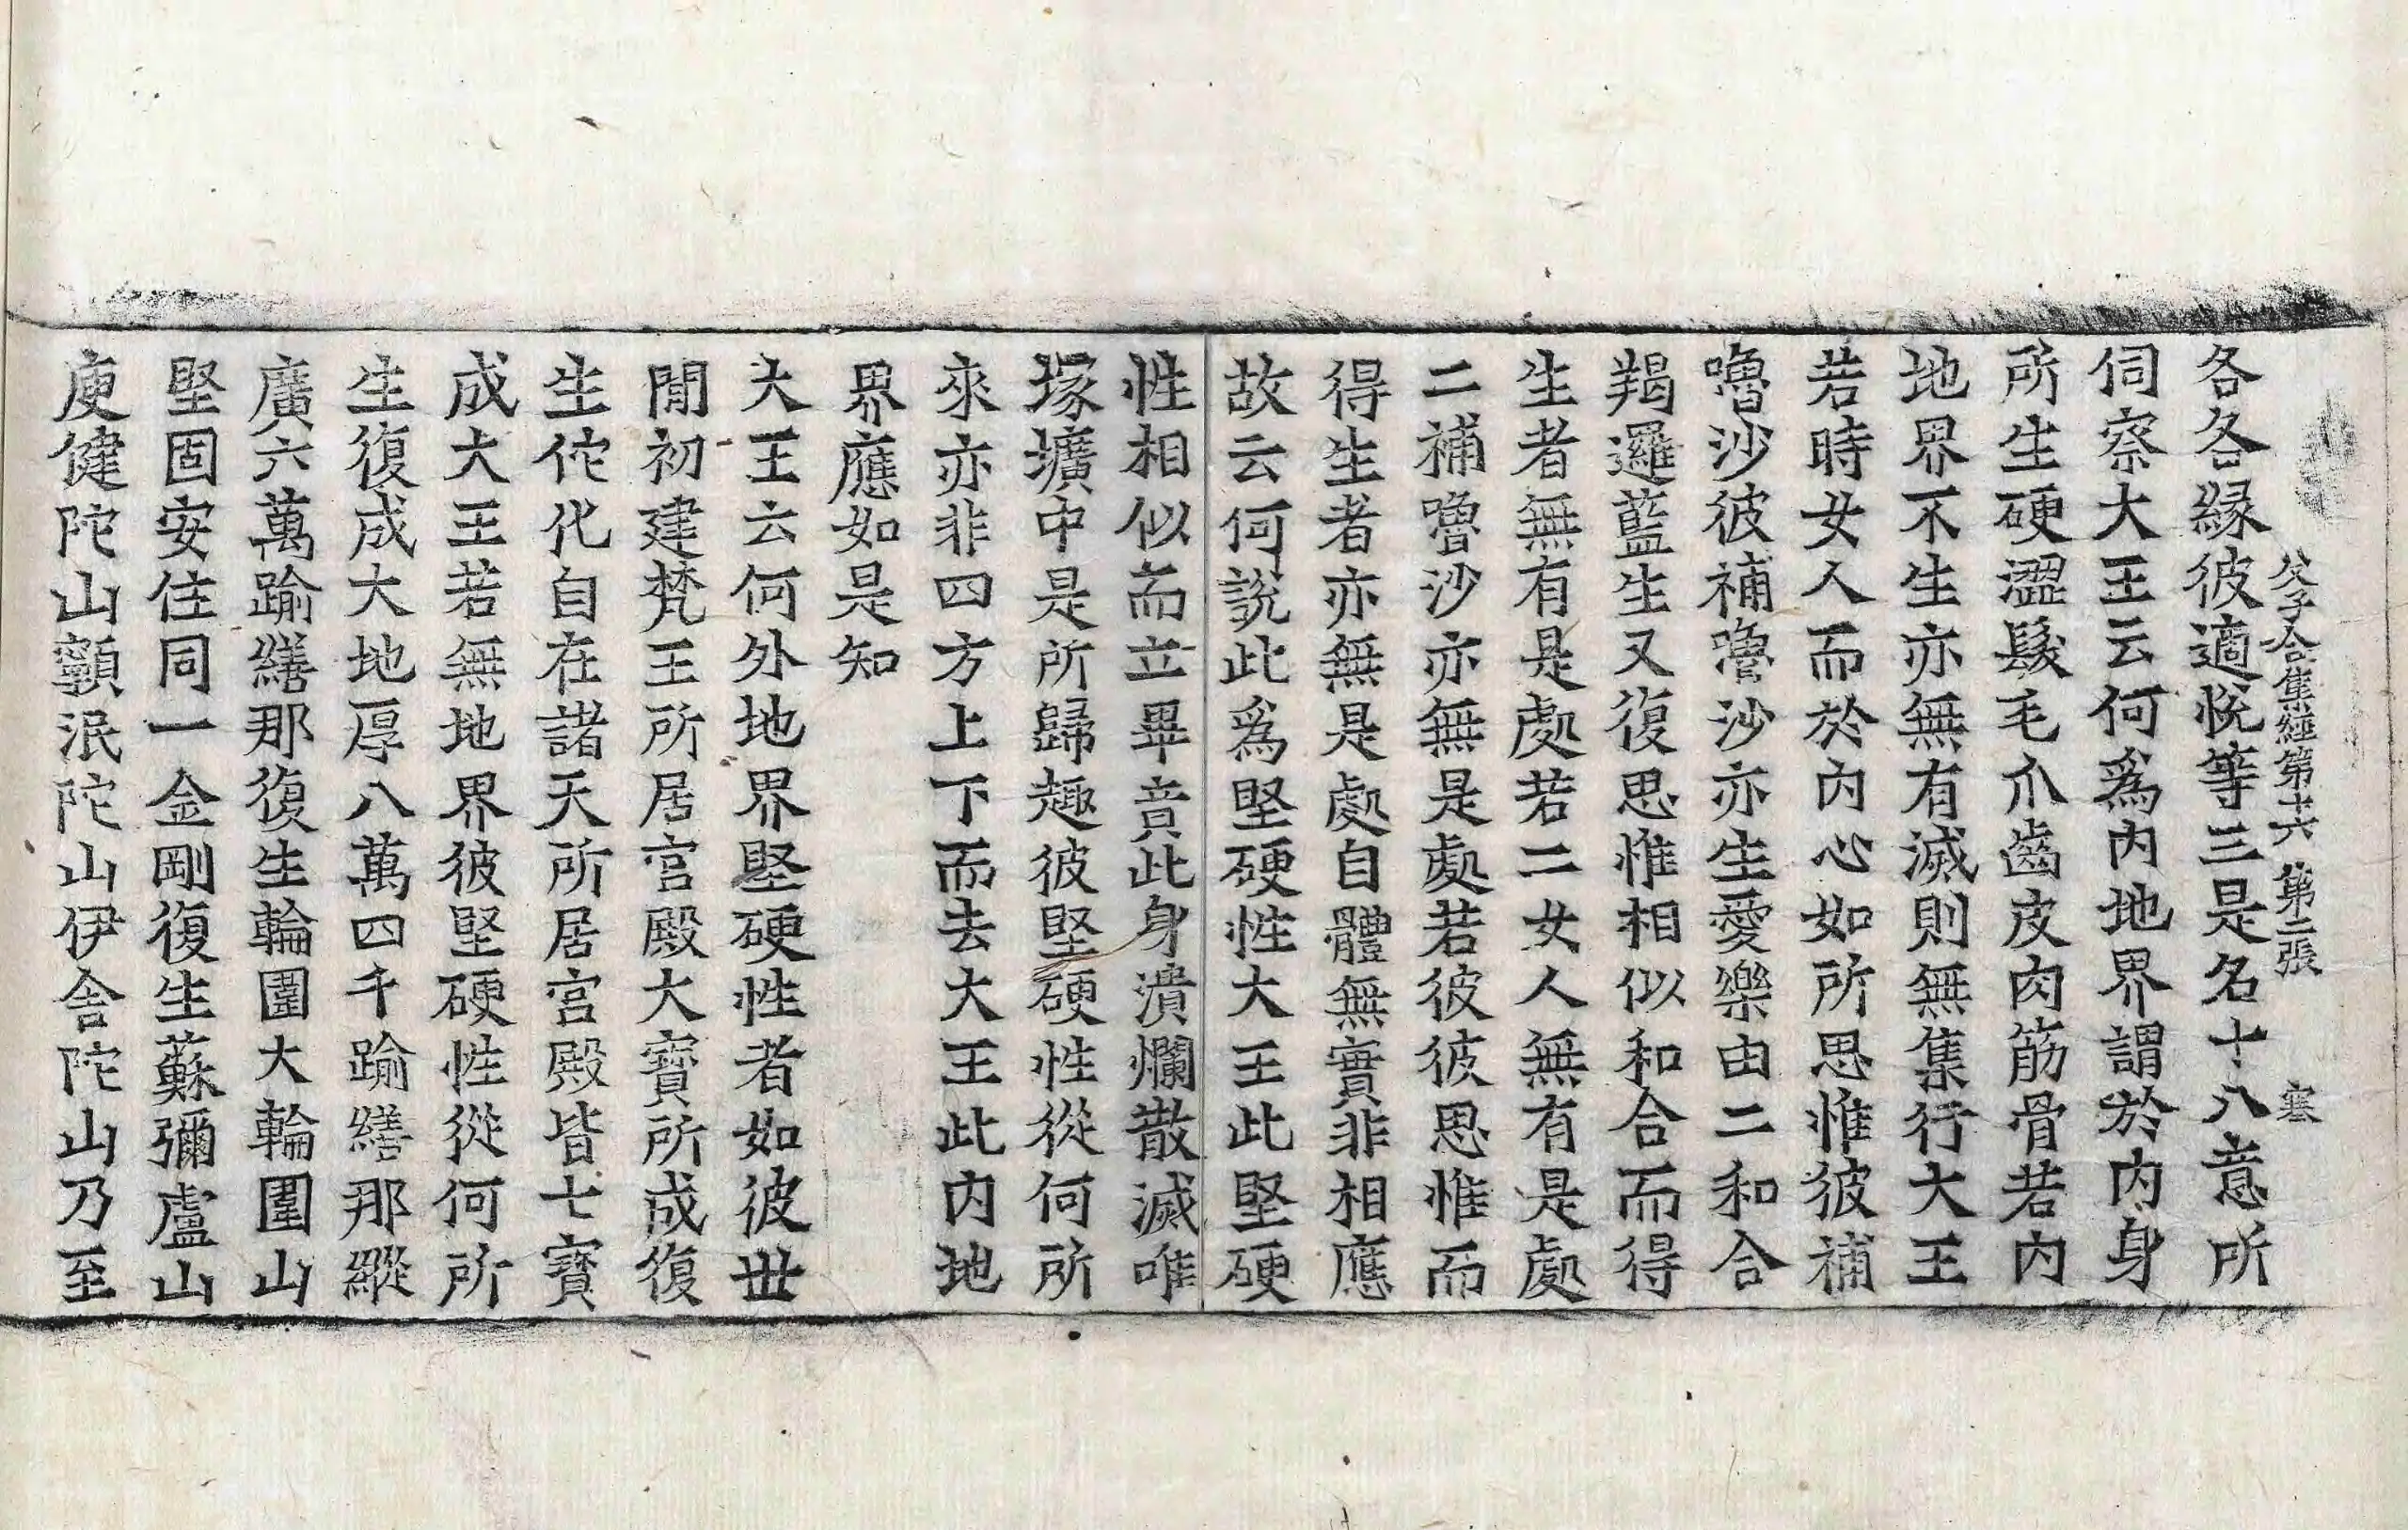 父子合集經第十六 第二張 寒
各各緣彼適悅等三是名十八意所
伺察大王云何爲內地界謂於內身
所生硬澀髮毛爪齒皮肉筋骨若內
地界不生亦無有滅則無集行大王
若時女人而於內心如所思惟彼補
嚕沙彼補嚕沙亦生愛樂由二和合
羯邏藍生又復思惟相似和合而得
生者無有是處若二女人無有是處
二補嚕沙亦無是處若彼彼思惟而
得生者亦無是處自體無實非相應
故云何說此爲堅硬性大王此堅硬
性相似而立畢竟此身潰爛散滅唯
塚壙中是所歸趣彼堅硬性從何所
來亦非四方上下而去大王此內地
界應如是知
大王云何外地界堅硬性者如彼世
閒初建梵王所居宮殿大寶所成復
生佗化自在諸天所居宮殿皆七寶
成大王若無地界彼堅硬性從何所
生復成大地厚八萬四千踰繕那縱
廣六萬踰繕那復生輪圍大輪圍山
堅固安住同一金剛復生蘇彌盧山
庾健陀山顙泯陀山伊舍陀山乃至